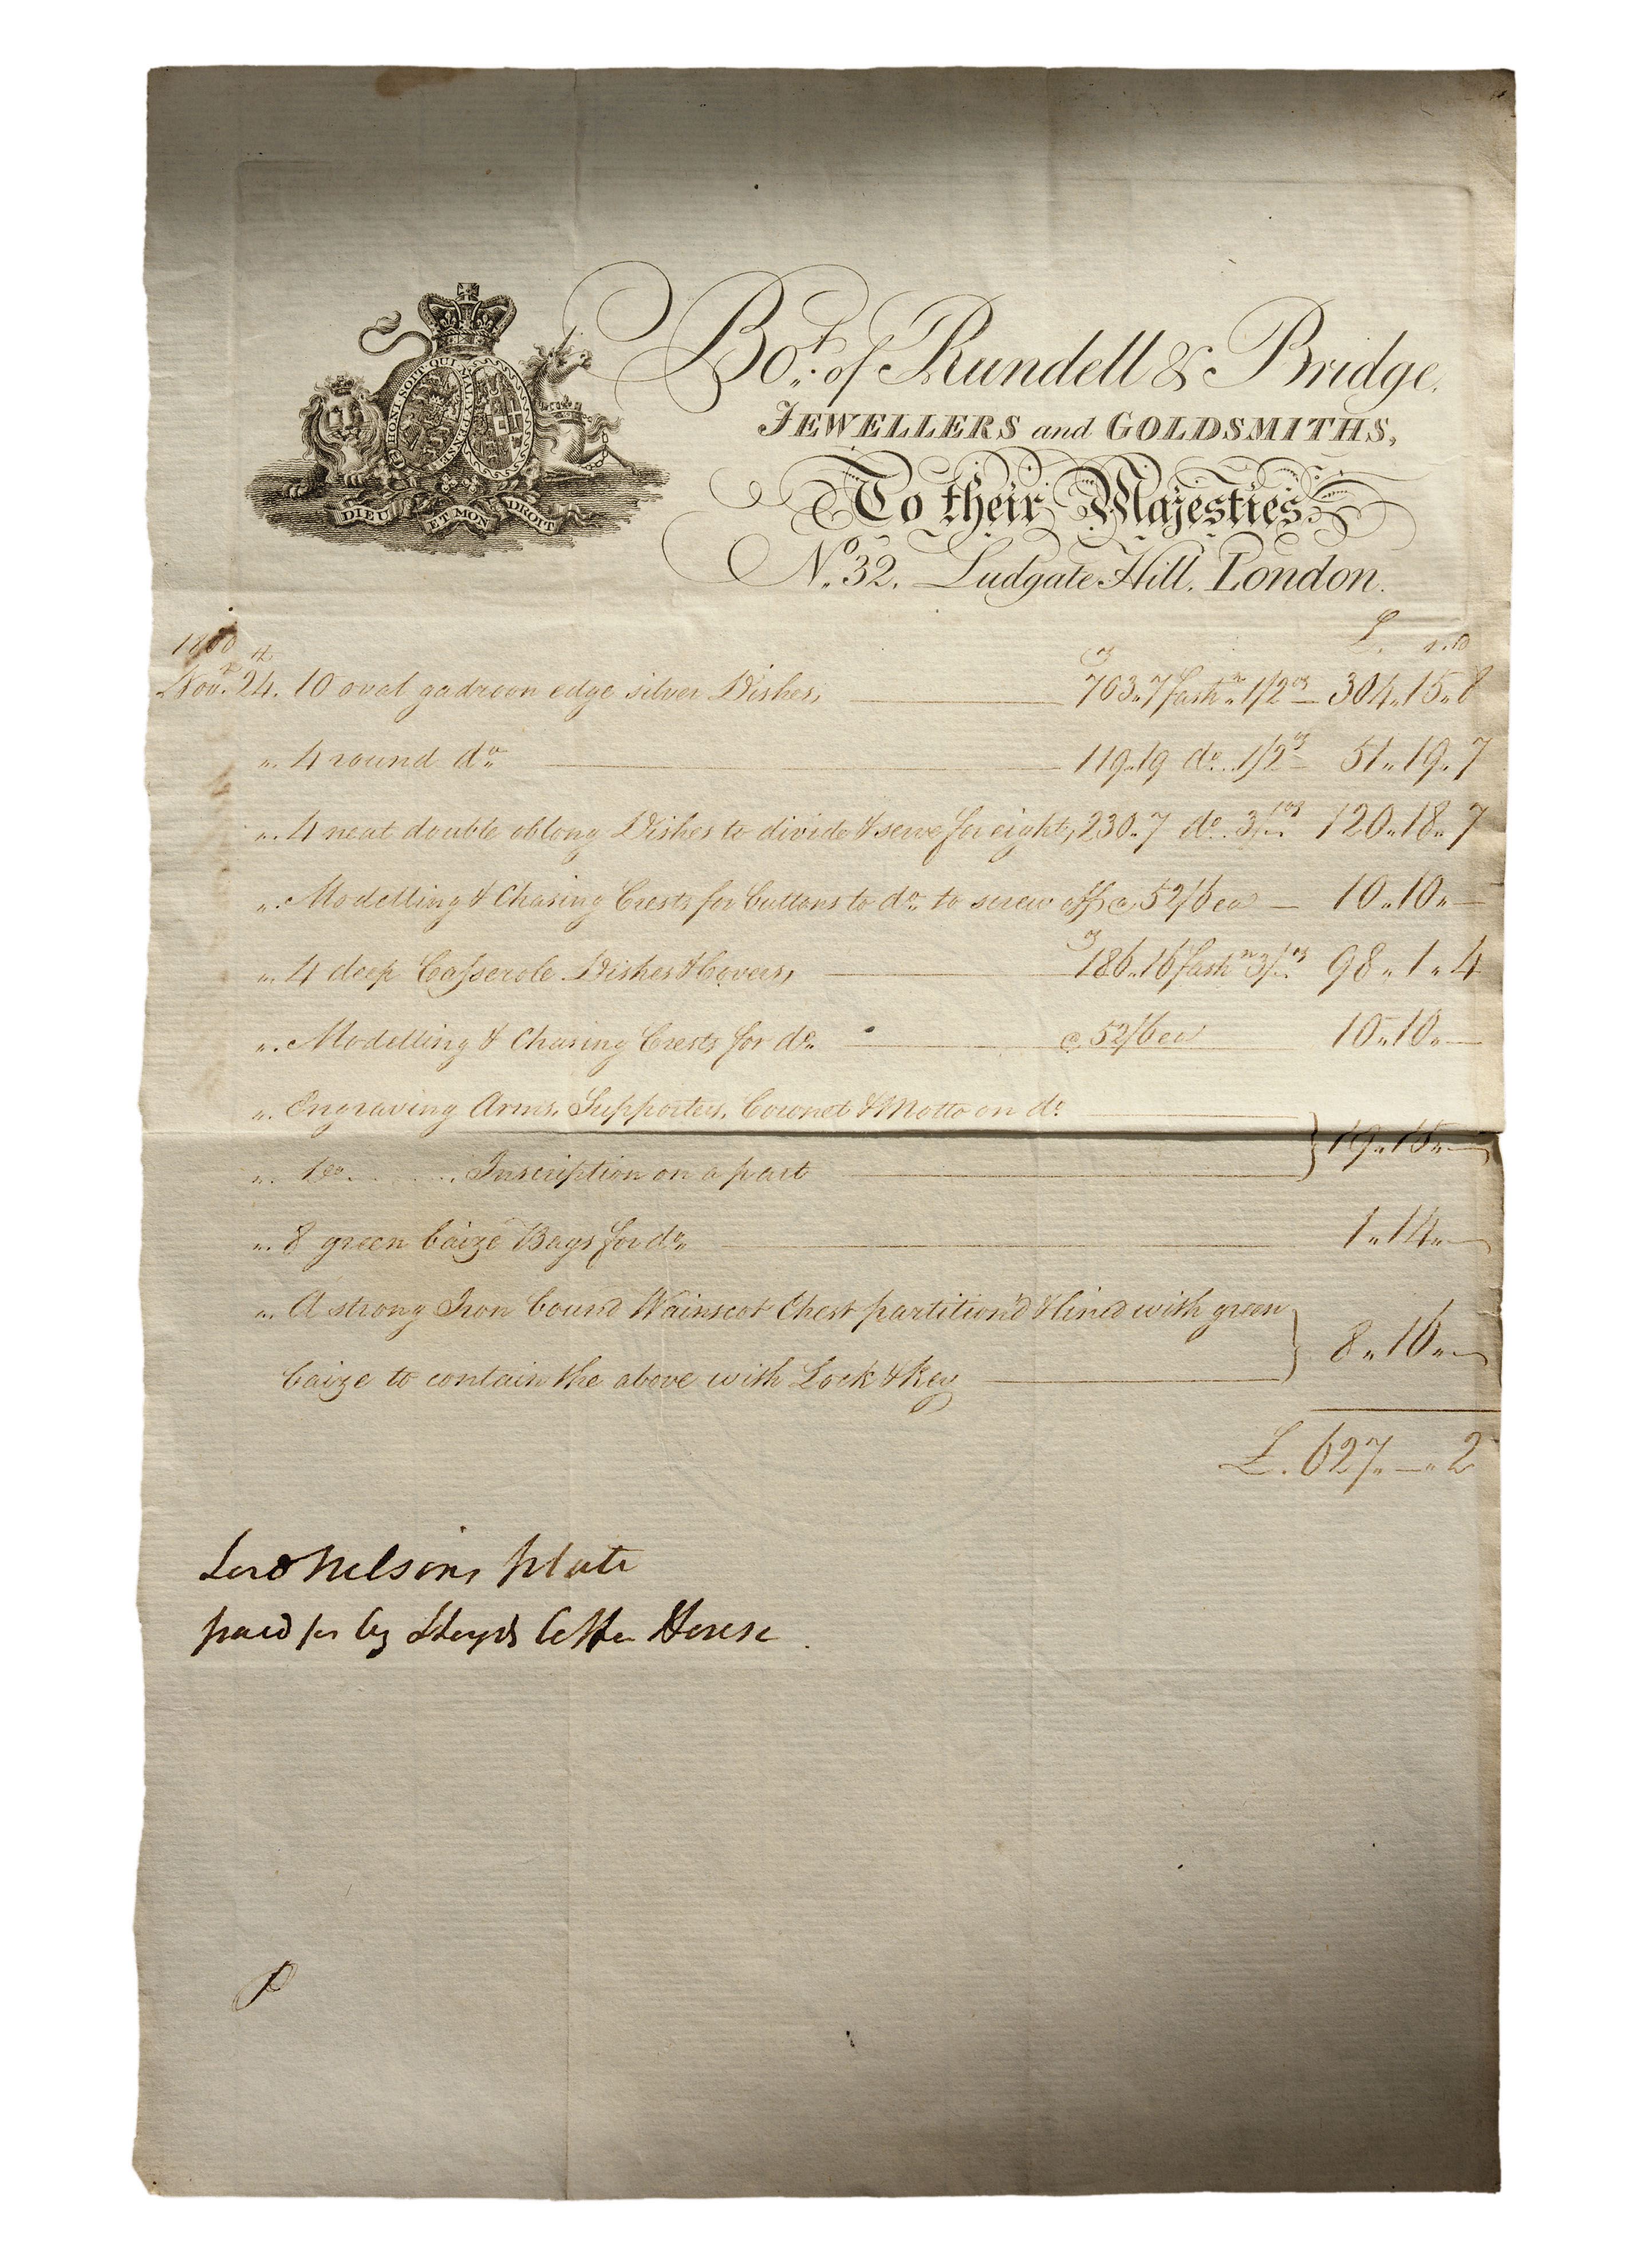 HONI SOIT QUI MAL Y PENSE
DIEU ET MON DROIT
Bot. of Rundell & Bridge,
JEWELLERS and GOLDSMITHS,
To their Majesties
No. 32. Ludgate Hill. London.
1800 £. s. d
Novr. 24. 10 oval gadroon edge silver Dishes, oz 703.,7 fashn. 1/2 oz 304.,15.,8
,,. 4 round do. 119.,19 do. 1/2 oz 51.,19.,7
,,. 4 neat double oblong Dishes to divide & serve for eight, 230.,7 do. 3/. oz 120.,18.,7
,,. Modelling & Chasing Crests for buttons to do. to screw off @ 52/6 ea 10.,10.,—
,,. 4 deep Casserole Dishes & Covers, oz 186.,16 fashn 3/. oz 98.,1.,4
,,. Modelling & Chasing Crests for do. @ 52/6 ea 10.,10.,—
,,. Engraving Arms, Supporters, Coronet & Motto on do.
,,. Do. . . . . . Inscription on a part } 19.,15.,—
,,. 8 green baize Bags for do. 1.,14.,—
,,. A strong Iron bound Wainscot Chest partition'd & lined with green
baize to contain the above with Lock & Key } 8.,16.,—
£. 627.,—.,2
Lord Nelsons plate
paid for by Lloyds Coffee House